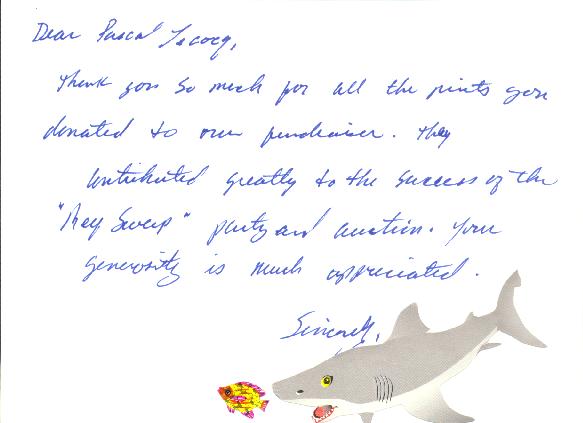 Dear Pascal Lecocq,
Thank you so much for all the prints you
donated to our fundraiser. They
contributed greatly to the success of the
" " party and auction. Your
generosity is much appreciated.
Sincerely,